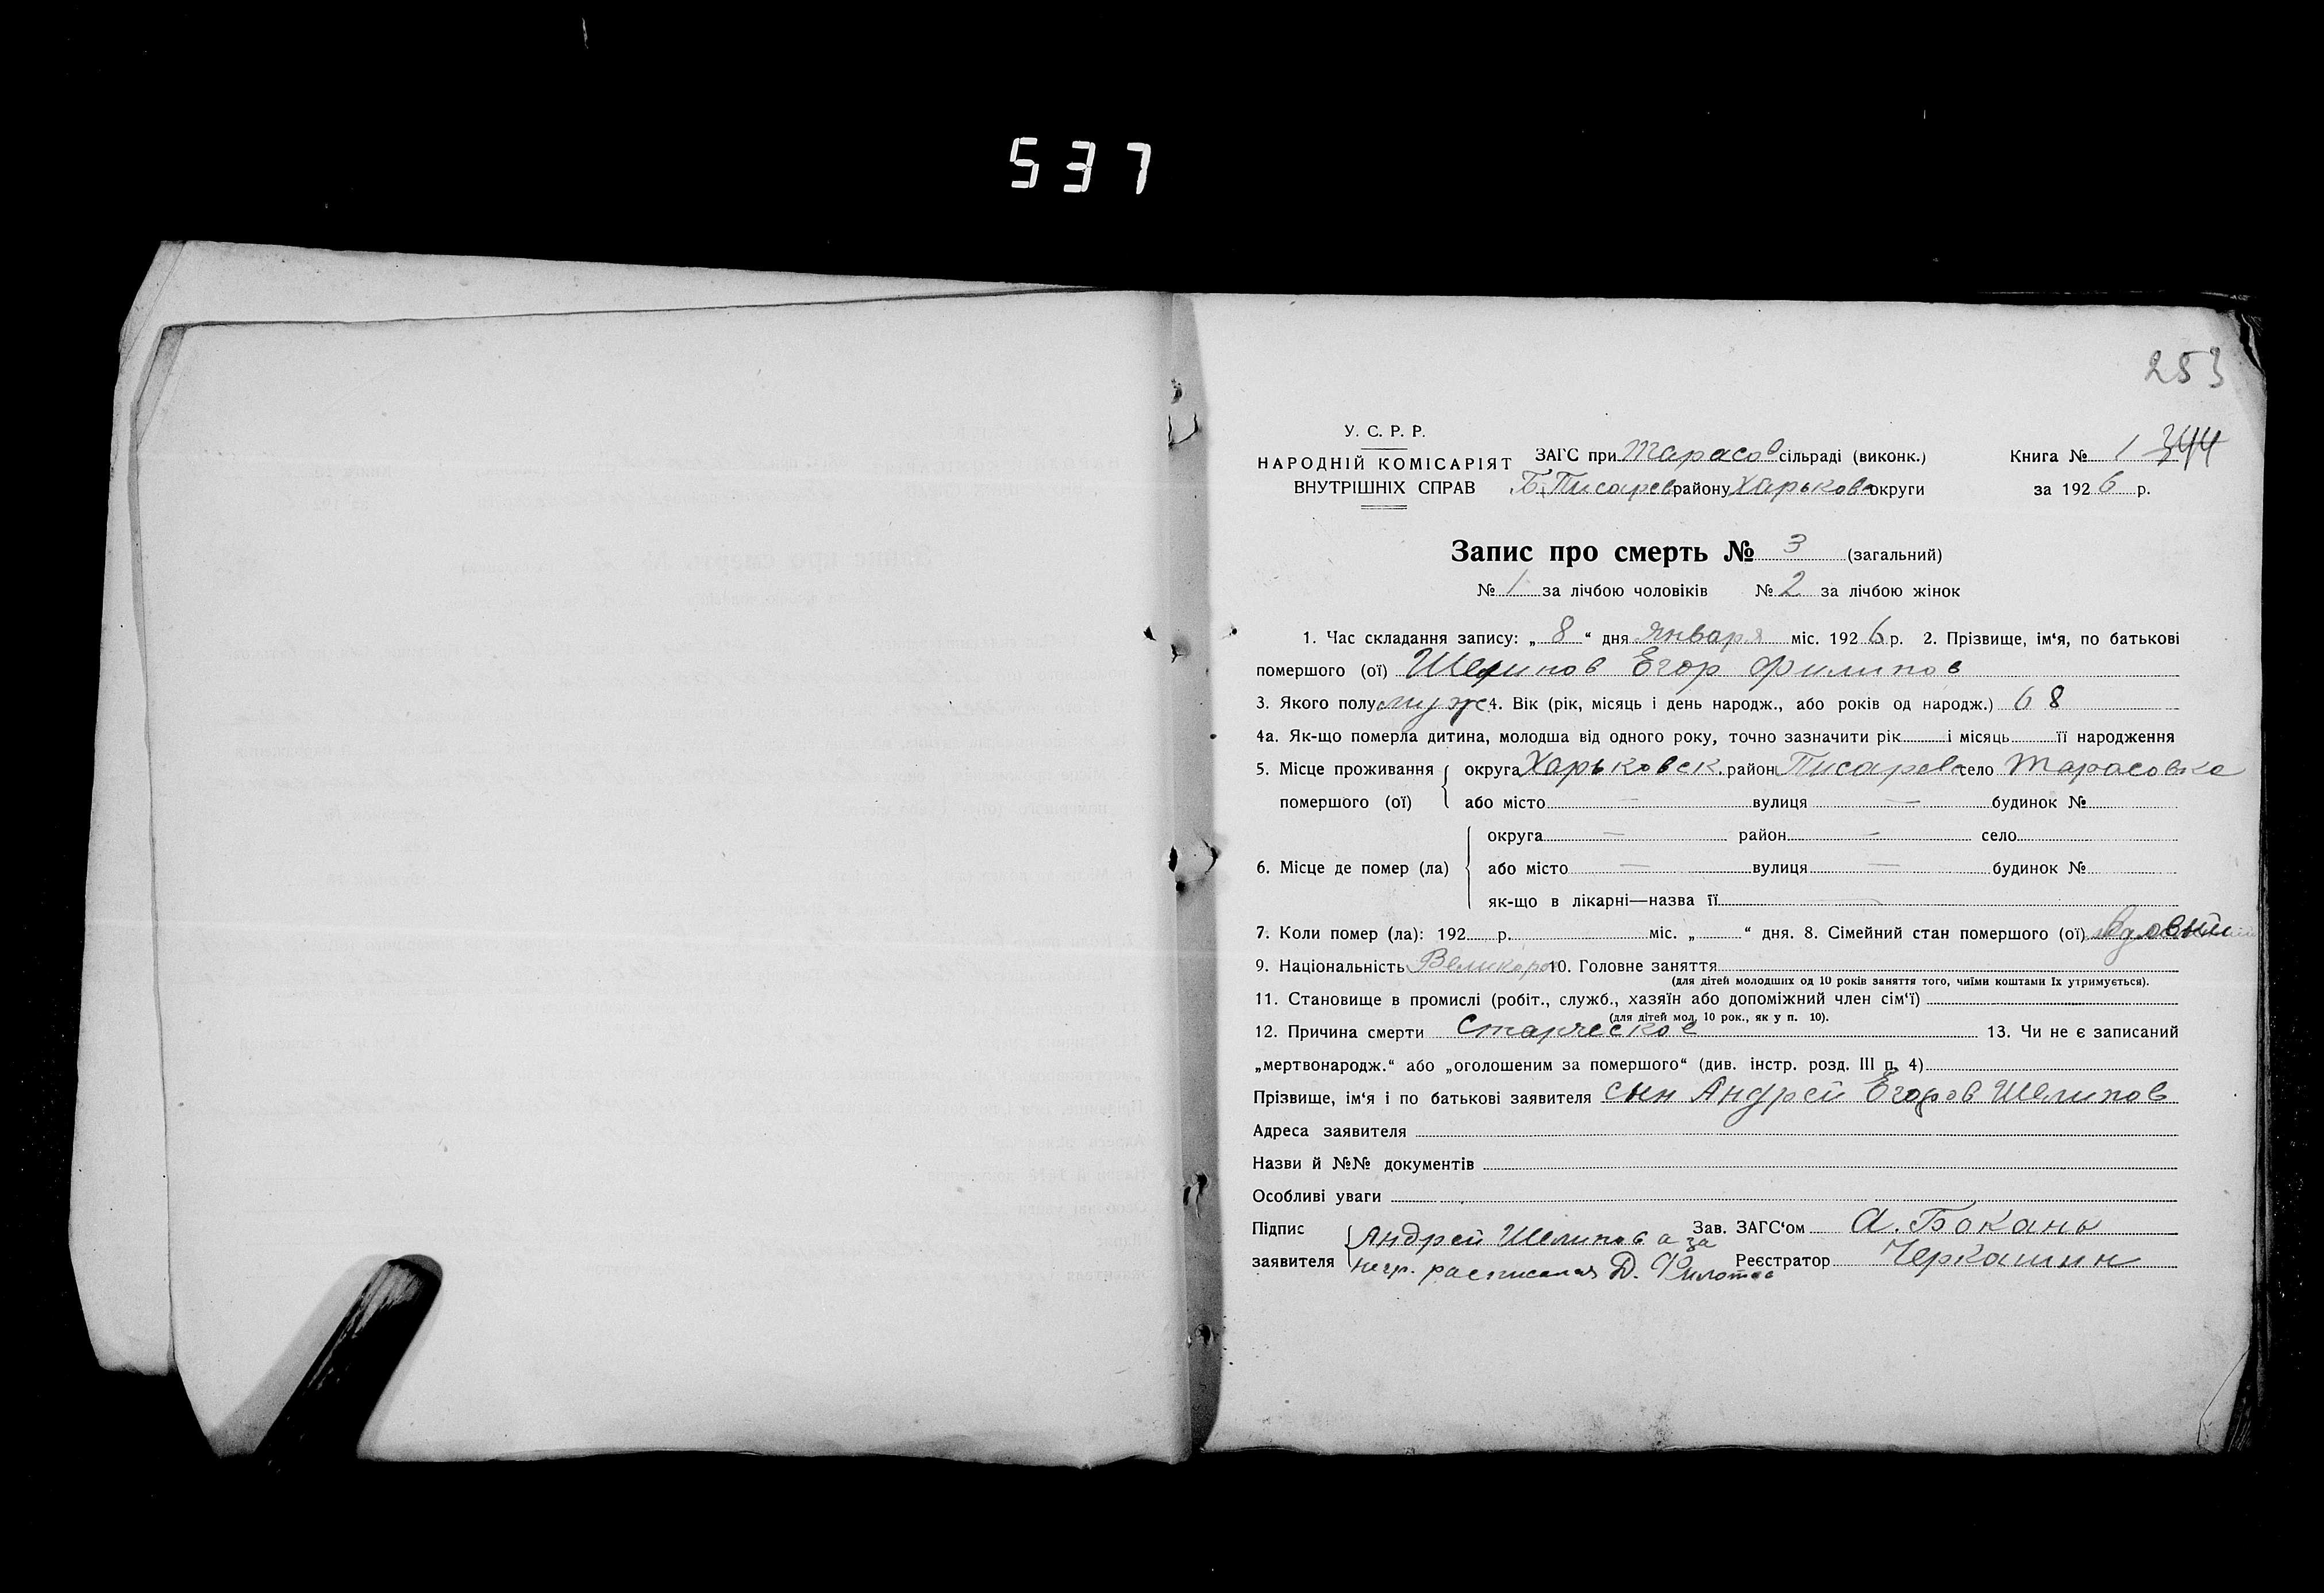 537
253
У. С. Р. Р.
НАРОДНІЙ КОМІСАРІЯТ
ВНУТРІШНІХ СПРАВ
ЗАГС при Тарасов сільраді (виконк.)
Б. Писарев району Харьков округи
Книга № 1 344
за 1926 р.
Запис про смерть № 3 (загальний)
№ 1 за лічбою чоловіків № 2 за лічбою жінок
1. Час складання запису: „ 8 “ дня января міс. 1926 р. 2. Прізвище, ім‘я, по батькові
помершого (ої) Шелипов Егор Филипов
3. Якого полу муж 4. Вік (рік, місяць і день народж., або років од народж.) 68
4а. Як-що померла дитина, молодша від одного року, точно зазначити рік і місяць її народження
5. Місце проживання округа Харьковск. район Писарев село Тарасовка
помершого (ої) або місто — вулиця — будинок №
округа — район — село
6. Місце де помер (ла) або місто — вулиця — будинок №
як-що в лікарні—назва її
7. Коли помер (ла): 192 р. міс. „ “ дня. 8. Сімейний стан помершого (ої) вдовый
9. Національність Великорос 10. Головне заняття
(для дітей молодших од 10 років заняття того, чиїми коштами їх утримується).
11. Становище в промислі (робіт., служб., хазяїн або допоміжний член сім‘ї)
(для дітей мол. 10 рок., як у п. 10).
12. Причина смерти Старческое 13. Чи не є записаний
„мертвонародж.“ або „оголошеним за помершого“ (див. інстр. розд. III п. 4)
Прізвище, ім‘я і по батькові заявителя сын Андрей Егоров Шелипов
Адреса заявителя
Назви й №№ документів
Особливі уваги
Підпис Андрей Шелипов а за Зав. ЗАГС‘ом А. Бокань
заявителя негр. расписался Д. Реєстратор Черкашин